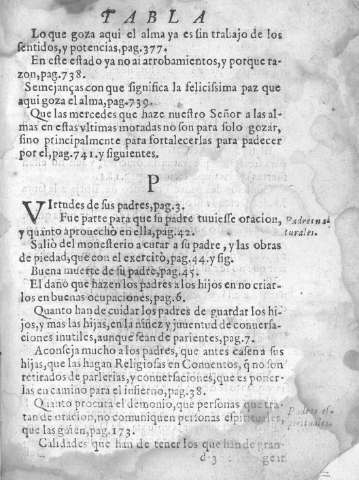 TABLA
Lo que goza aqui el alma ya es sin trabajo de los
sentidos, y potencias, pag. 377.
En este estado ya no ai arrobamientos, y porque ra-
zon, pag. 738.
Semejanças con que significa la felicissima paz que
aqui goza el alma, pag. 739.
Que las mercedes que haze nuestro Señor a las al-
mas en estas vltimas moradas no son para solo gozar,
sino principalmente para fortalecerlas para padecer
por el, pag. 741. y siguientes.
P
VIrtudes de sus padres, pag. 3.
Fue parte para que su padre tuuiesse oracion,
y quanto aprouechò en ella, pag. 42.
Padres na-
turales.
Saliò del monesterio a curar a su padre, y las obras
de piedad, que con el exercitò, pag. 44. y sig.
Buena muerte de su padre, pag. 45.
El daño que hazen los padres a los hijos en no criar-
los en buenas ocupaciones, pag. 6.
Quanto han de cuidar los padres de guardar los hi-
jos, y mas las hijas, en la niñez y juuentud de conuersa-
ciones inutiles, aunque sean de parientes, pag. 7.
Aconseja mucho a los padres, que antes casen a sus
hijas, que las hagan Religiosas en Conuentos, q̃ no son
retirados de parlerias, y conuersaciones, que es poner-
las en camino para el infierno, pag. 38.
Quanto procura el demonio, que personas que tra-
tan de oracion, no comuniquen personas espirituales,
que las guien, pag. 173.
Padres es-
pirituales.
Calidades que han de tener los que han de gran-
d 3 gear